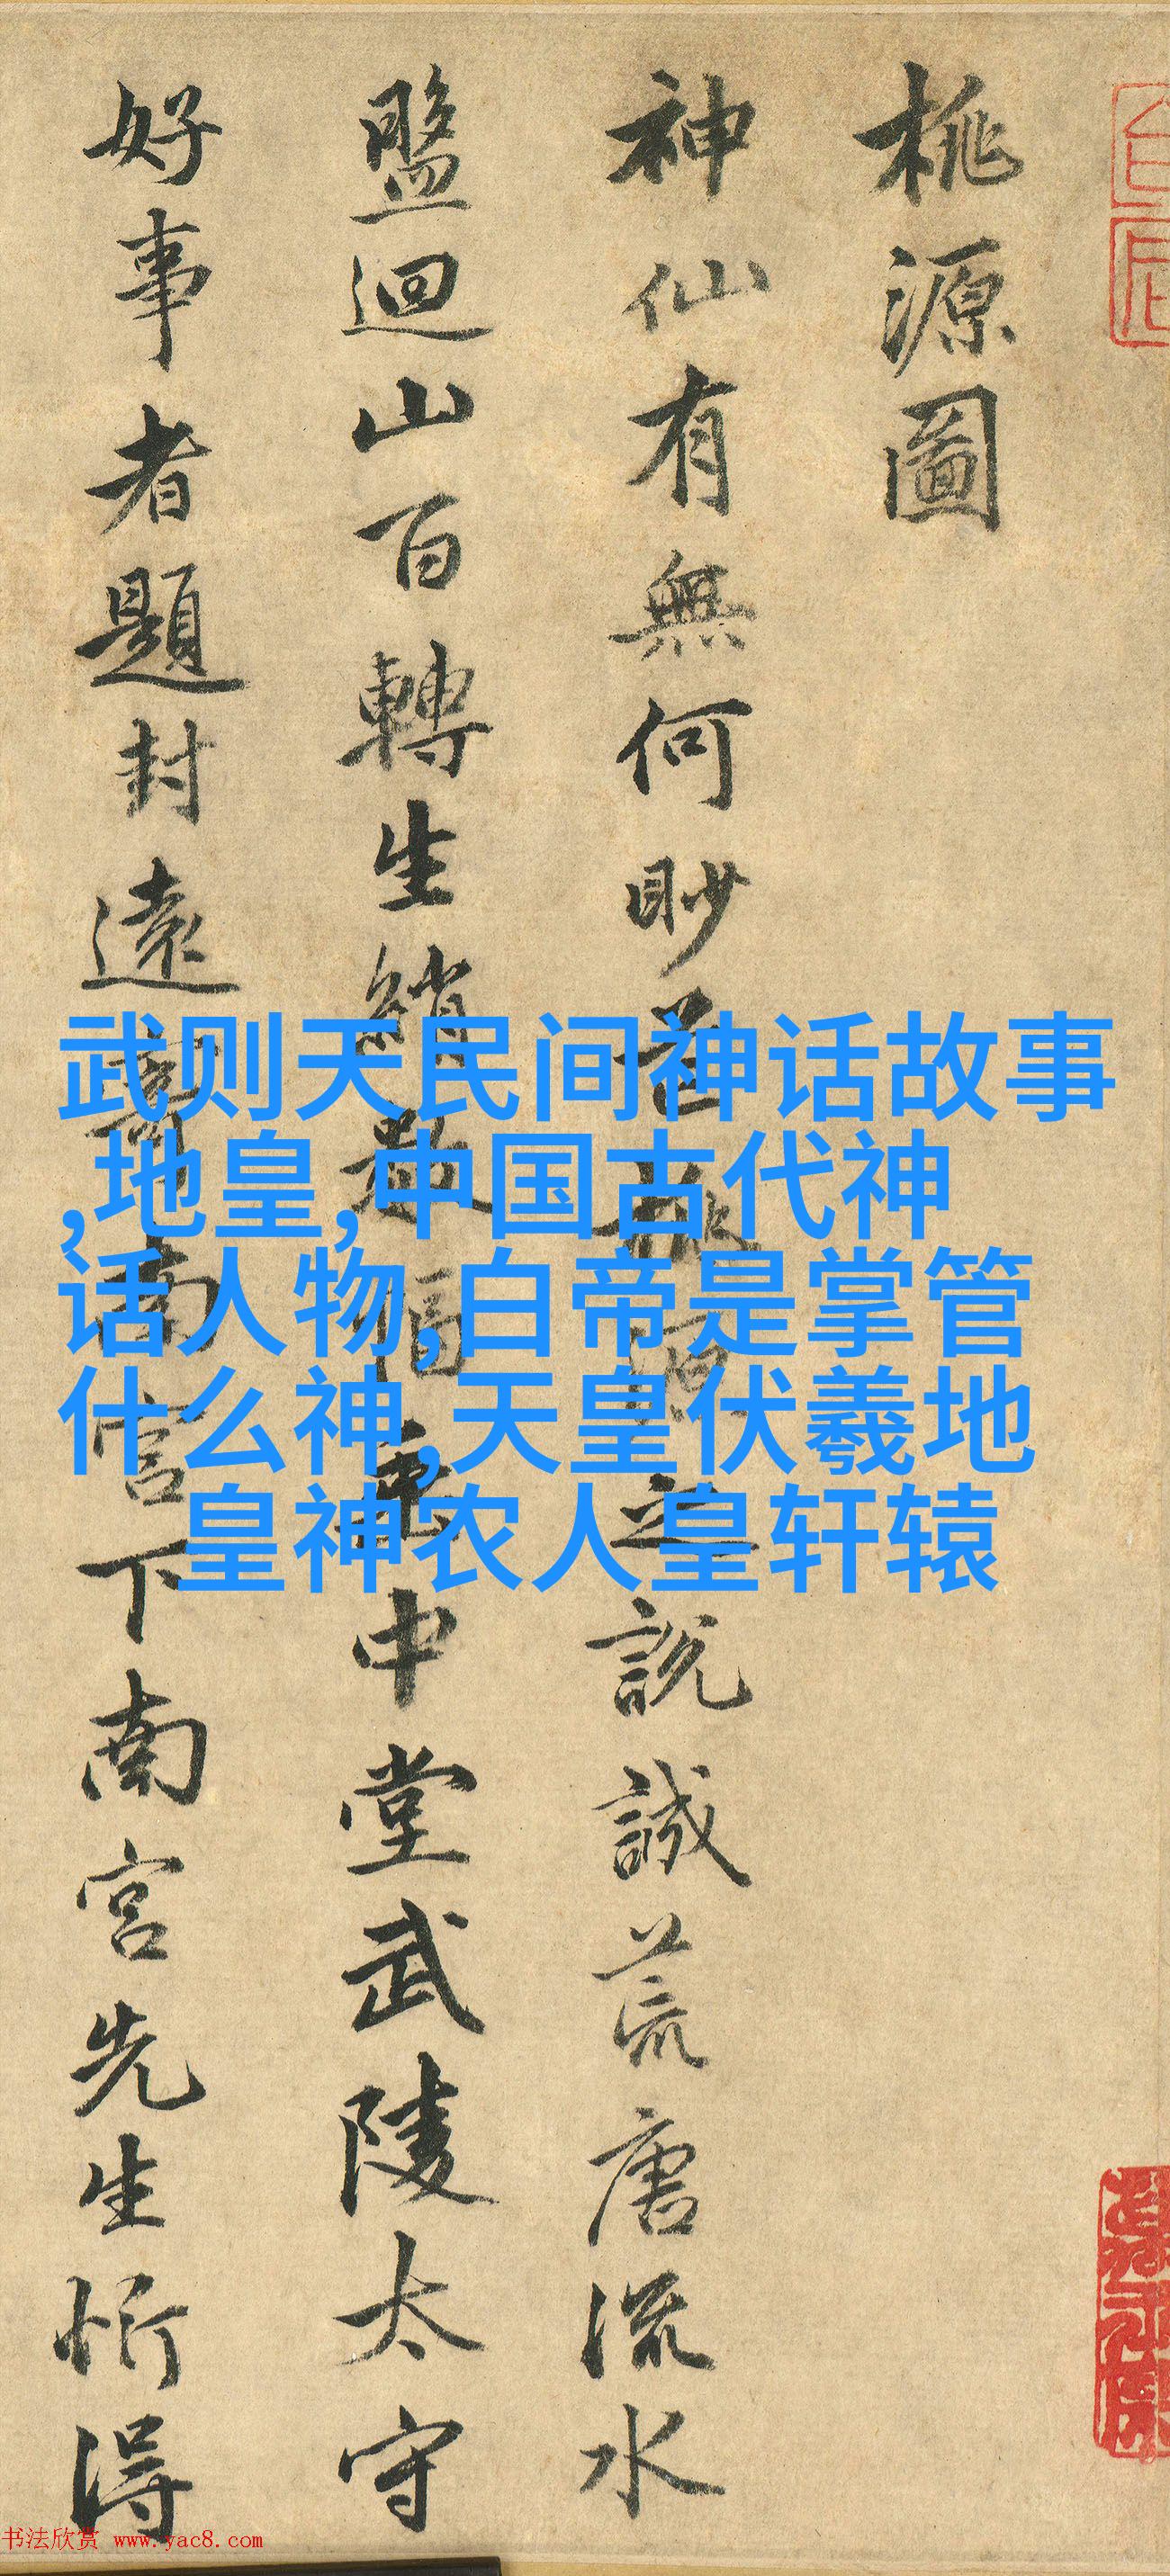 桃源圖
神仙有無何眇芒桃源之說誠荒唐流水
盤迴山百轉生綃數幅垂中堂武陵太守
好事者題封遠寄南宮下南宮先生忻得
武则天民间神话故事
,地皇,中国古代神
话人物,白帝是掌管
什么神,天皇伏羲地
皇神农人皇轩辕
书法欣赏 www.yac8.com